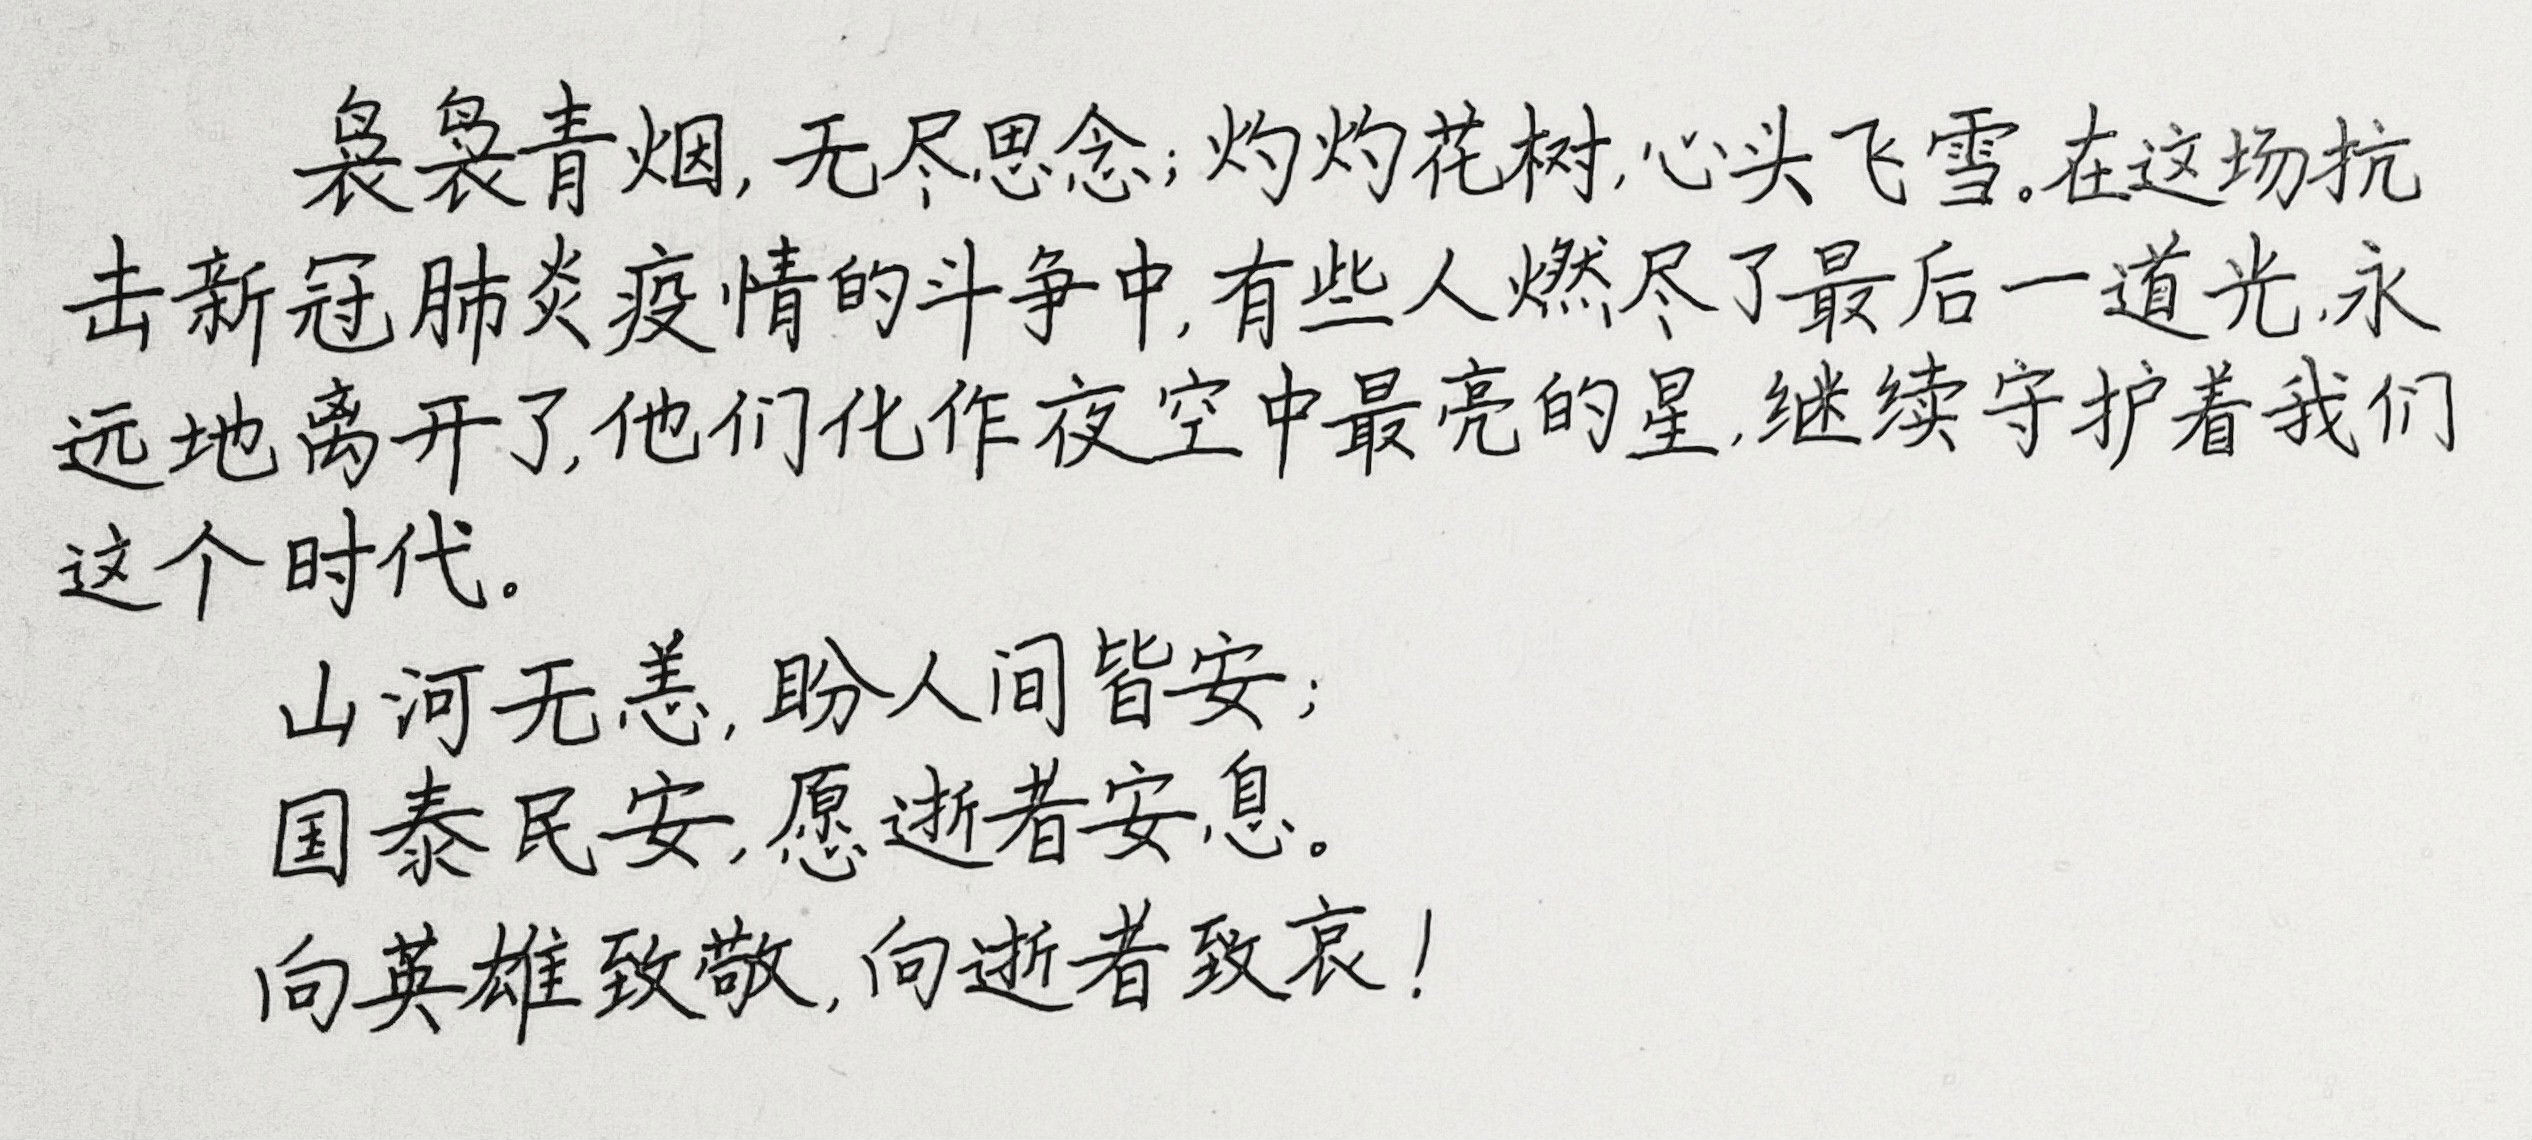 袅袅青烟，无尽思念；灼灼花树，心头飞雪。在这场抗
击新冠肺炎疫情的斗争中，有些人燃尽了最后一道光，永
远地离开了，他们化作夜空中最亮的星，继续守护着我们
这个时代。
山河无恙，盼人间皆安；
国泰民安，愿逝者安息。
向英雄致敬，向逝者致哀！